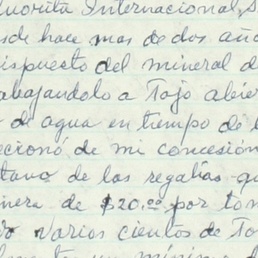 Fluorita Internacional, S
sde hace mas de dos año
ispuesto del mineral d
abajandolo a Tajo abier
de agua en tiempo de l
ecionó de mi concesión
tavo de las regalias qu
nera de $20.00 por ton
varios cientos de To